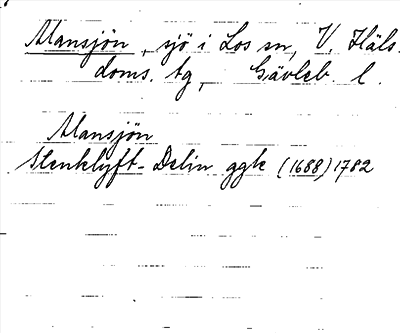 Alansjön, sjö i Los sn, V. Häls.
doms. tg, Gävleb. l.
Alansjön
Stenklyft-Delin ggk (1688) 1782